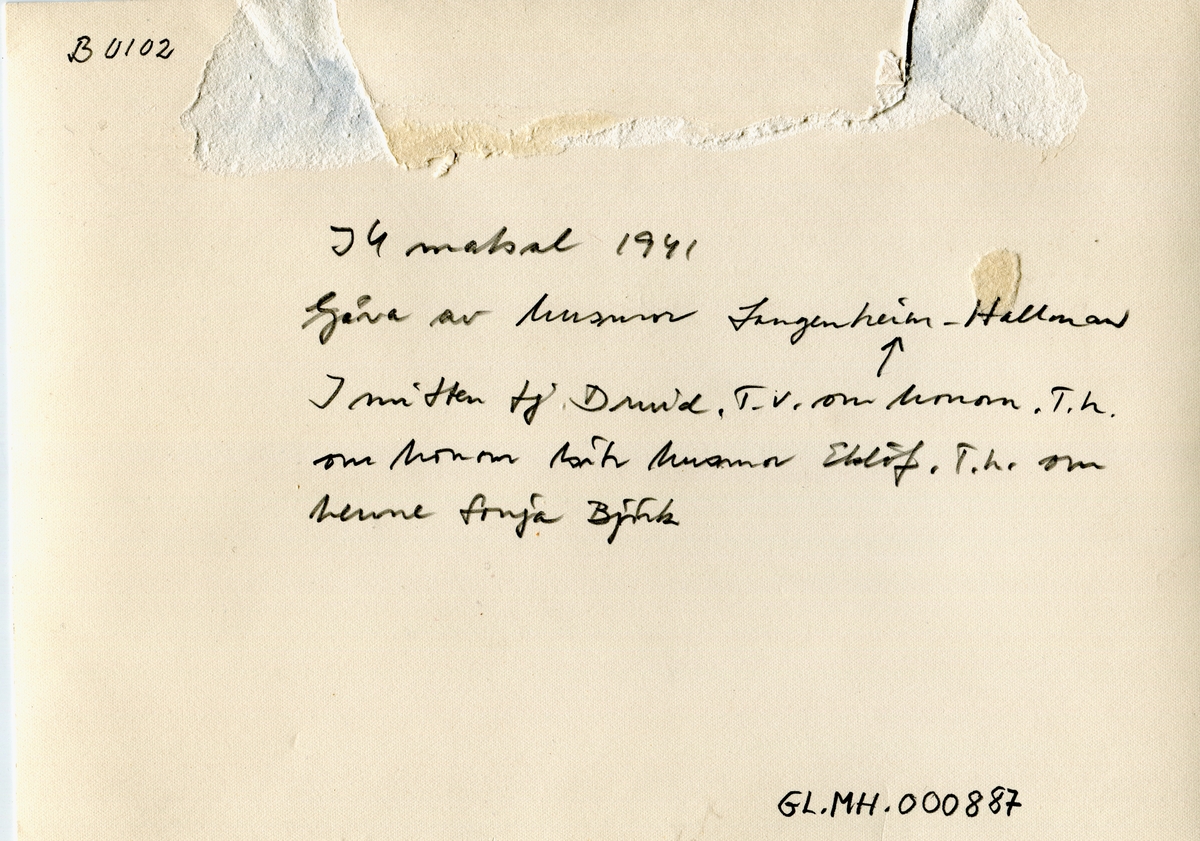 B 0102
I4 matsal 1941
Gåva av husmor Langenheim-Hallman
↑
I mitten fj Druid. T.v. om honom. T.h.
om honom bitr husmor Eklöf. T.h. om
henne Sonja Björk
GL.MH.000887